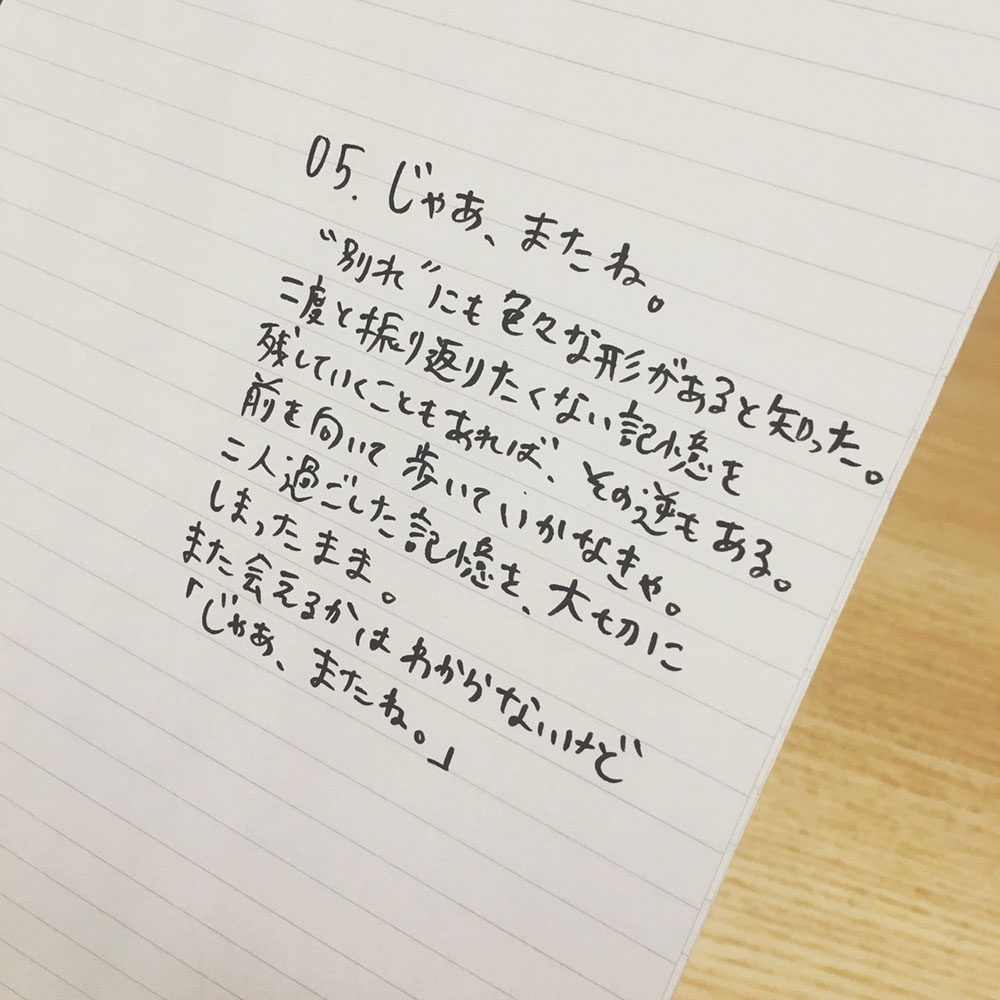 05. じゃあ、またね。
"別れ"にも色々な形があると知った。
二度と振り返りたくない記憶を
残していくこともあれば、その逆もある。
前を向いて歩いていかなきゃ。
二人過ごした記憶を、大切に
しまったまま。
また会えるかはわからないけど
「じゃあ、またね。」